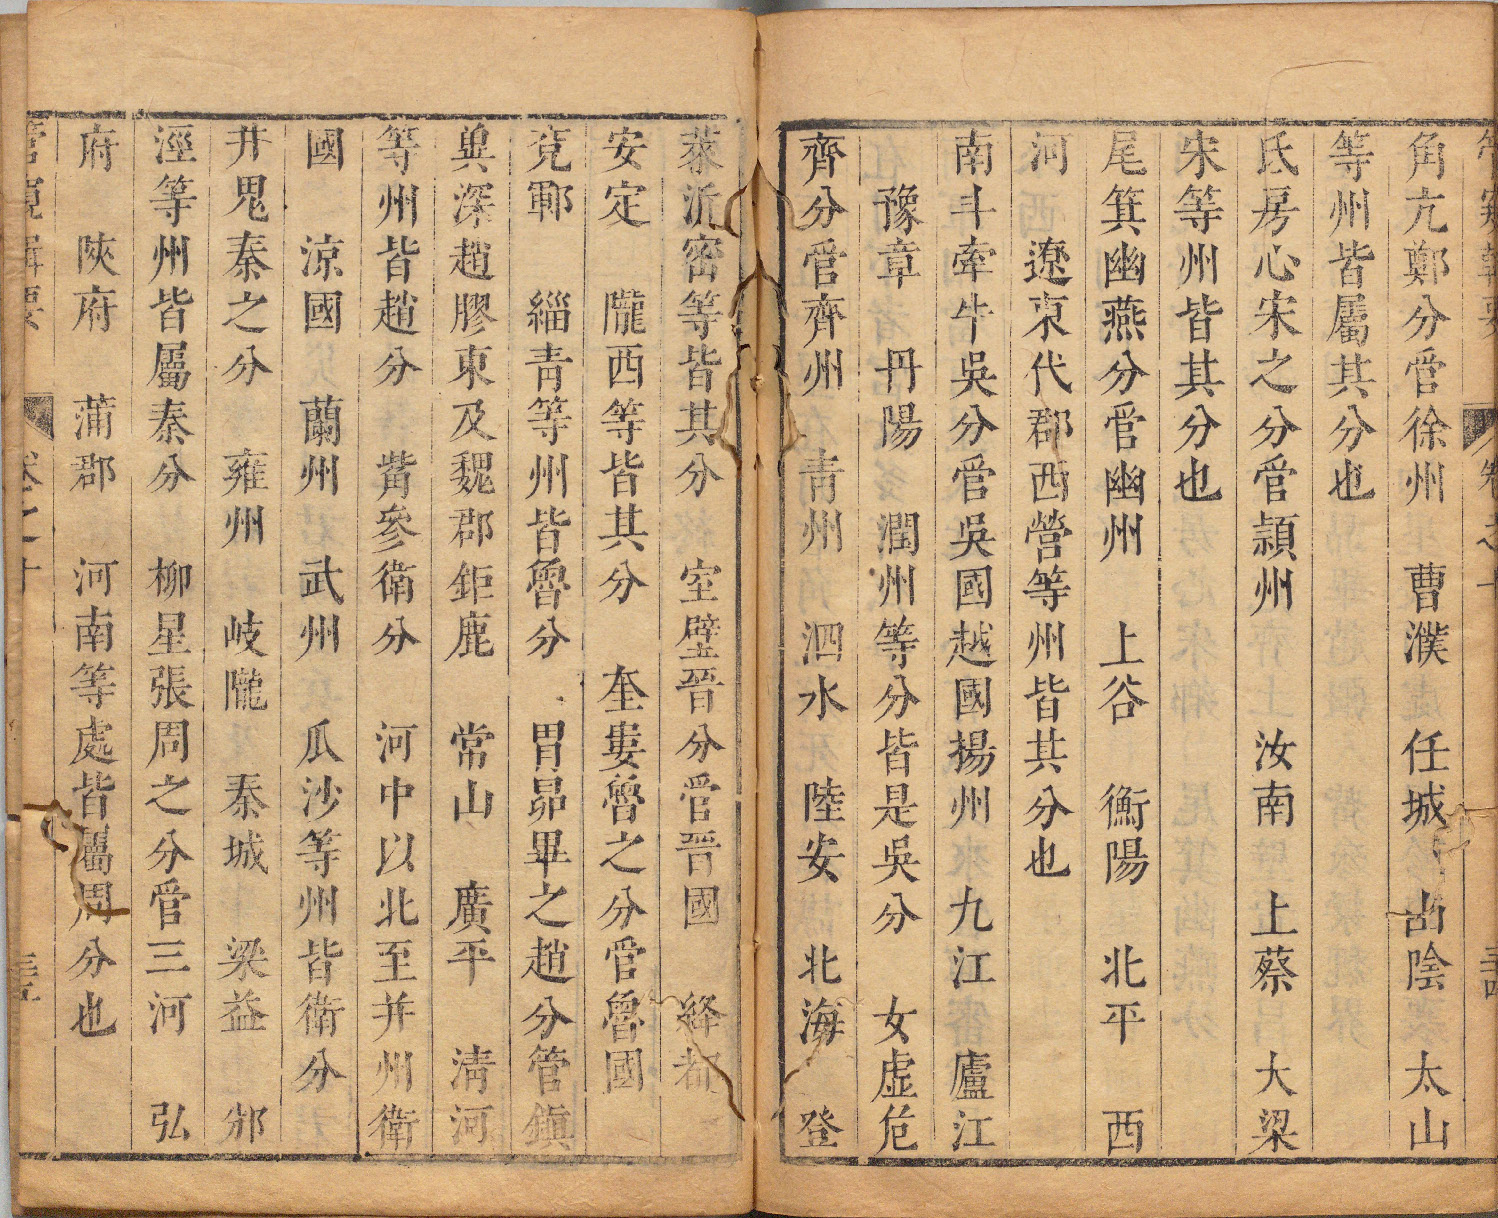 管窺輯要 卷之十
角亢鄭分官徐州 曹濮 任城 山陰 太山
等州皆屬其分也
氐房心宋之分官潁州 汝南 上蔡 大梁
宋等州皆其分也
尾箕幽燕分官幽州 上谷 衡陽 北平 西
河 遼東代郡西營等州皆其分也
南斗牽牛吳分官吳國越國揚州 九江 廬江
豫章 丹陽 潤州等分皆是吳分 女虛危
齊分官齊州 青州 泗水 陸安 北海 登
萊沂密等皆其分 室壁晉分官晉國 絳都
安定 隴西等皆其分 奎婁魯之分官魯國
兗鄆 緇青等州皆魯分 胃昴畢之趙分管鎮
兾深趙膠東及魏郡鉅鹿 常山 廣平 清河
等州皆趙分 觜參衛分 河中以北至并州衛
國 涼國 蘭州 武州 瓜沙等州皆衛分
井鬼秦之分 雍州 岐隴 秦城 梁益 邠
涇等州皆屬秦分 柳星張周之分官三河 弘
府 陝府 蒲郡 河南等處皆屬周分也
管窺輯要 卷之十